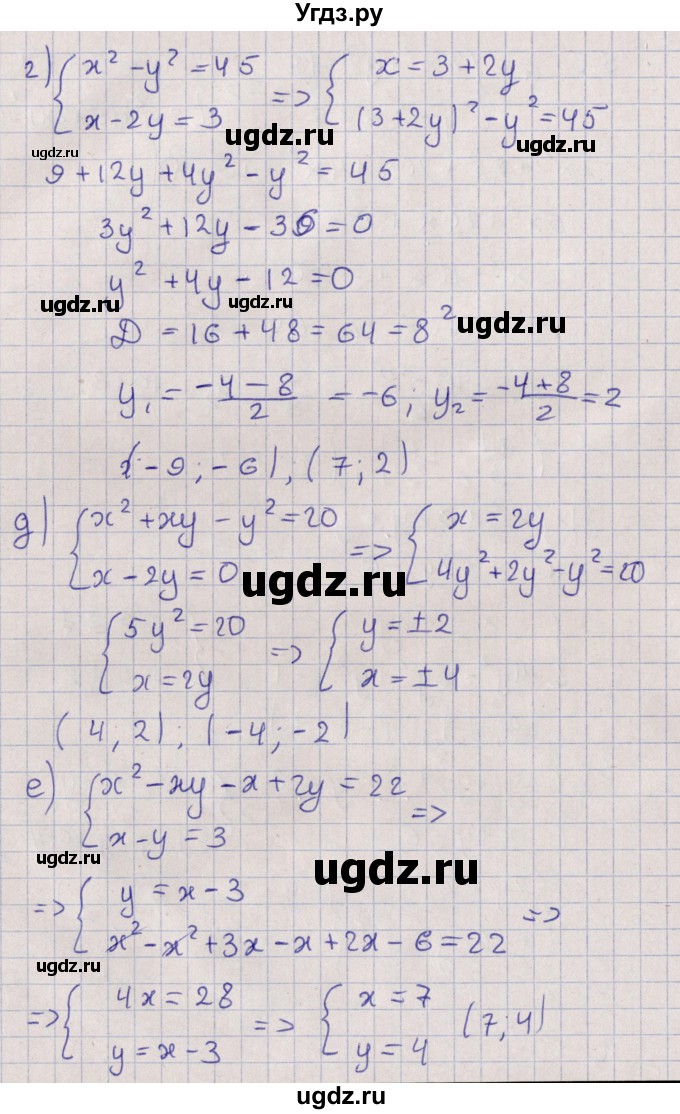 Угдз.ру
г) { x² - y² = 45 => { x = 3 + 2y
x - 2y = 3 (3+2y)² - y² = 45
ugdz.ru ugdz.ru ugdz.ru
9 + 12y + 4y² - y² = 45
3y² + 12y - 36 = 0
y² + 4y - 12 = 0
ugdz.ru ugdz.ru
D = 16 + 48 = 64 = 8²
ugdz.ru
y₁ = (-4-8)/2 = -6; y₂ = (-4+8)/2 = 2
(-9; -6), (7; 2)
д) { x² + xy - y² = 20 => { x = 2y
x - 2y = 0 4y² + 2y² - y² = 20
ugdz.ru
{ 5y² = 20 => { y = ±2
x = 2y x = ±4
(4, 2), (-4; -2)
е) { x² - xy - x + 2y = 22 =>
x - y = 3
ugdz.ru ugdz.ru
=> { y = x - 3 =>
x² - x² + 3x - x + 2x - 6 = 22
ugdz.ru
=> { 4x = 28 => { x = 7 (7; 4)
y = x - 3 y = 4
ugdz.ru